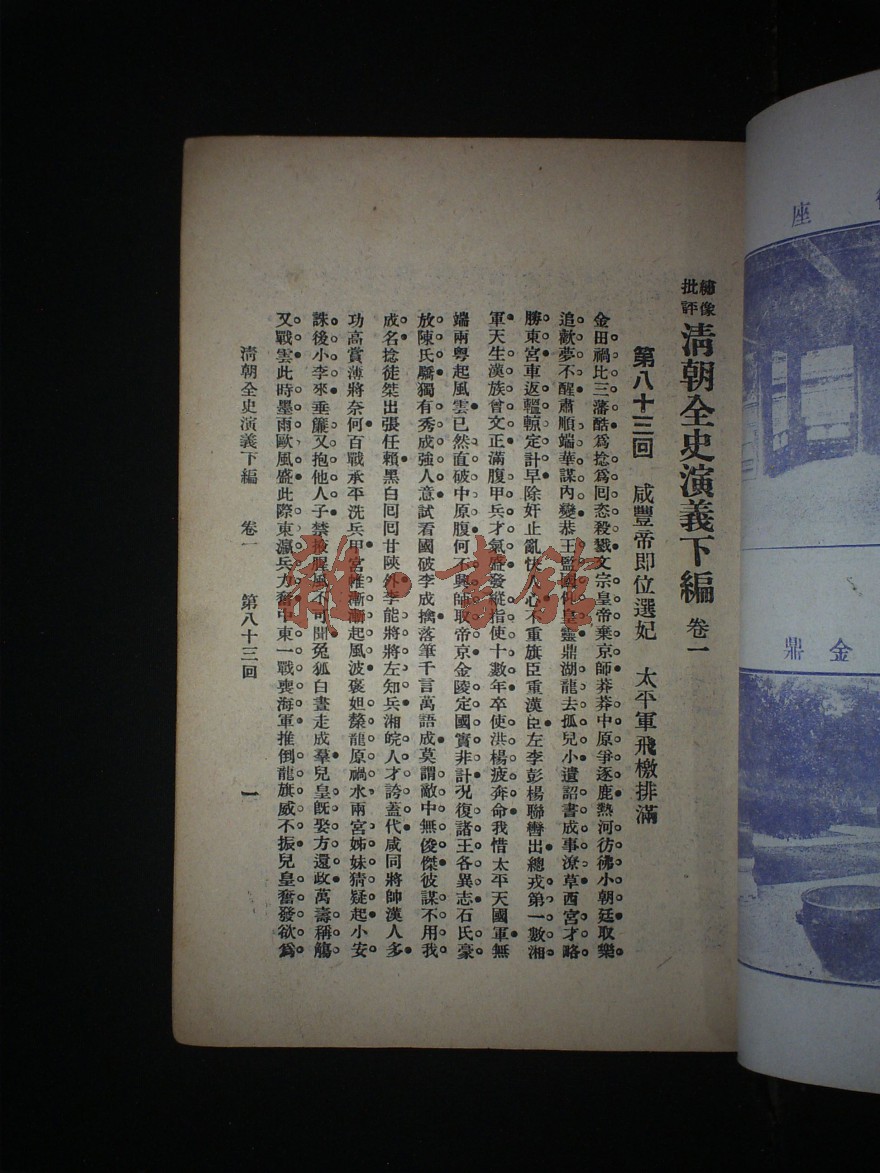 繡像批評 清朝全史演義下編 卷一
第八十三回 咸豐帝即位選妃 太平軍飛檄排滿
金田禍比三藩酷爲捻爲囘恣殺戮文宗皇帝棄京師莽莽中原爭逐鹿熱河彷彿小朝廷取樂
追歡夢不醒肅順端華謀內變恭王監國仰皇靈鼎湖龍去孤兒小遺詔書成事潦草西宮才略
勝東宮車返轀輬定計早除奸止亂快人心不重旗臣重漢臣左李彭楊聯轡出總戎第一數湘
軍天生漢族曾文正滿腹甲兵才氣盛發縱指使十數年卒使洪楊疲奔命我惜太平天國軍無
端兩粵起風雲已然直破中原腹何不興師取帝京金陵定國實非計況復諸王各異志石氏豪
放陳氏驕獨有秀成強人意試看國破李成擒落筆千言萬語成莫謂敵中無俊傑彼謀不用我
成名捻徒桀出張任賴黑白囘囘甘陝外李能將將左知兵湘皖人才誇蓋代咸同將帥漢人多
功高賞薄將奈何百戰承平洗兵甲宮帷漸漸起風波褒妲漦龍原禍水兩宮姊妹猜疑起小安
誅後小李來垂簾又抱他人子禁掖腥風不可聞兔狐白晝走成羣兒皇旣娶方還政萬壽稱觴
又戰雲此時墨雨歐風盛此際東瀛兵力奮中東一戰喪海軍推倒龍旗威不振兒皇奮發欲爲
清朝全史演義下編 卷一 第八十三回 一
座
金鼎
雜·書館